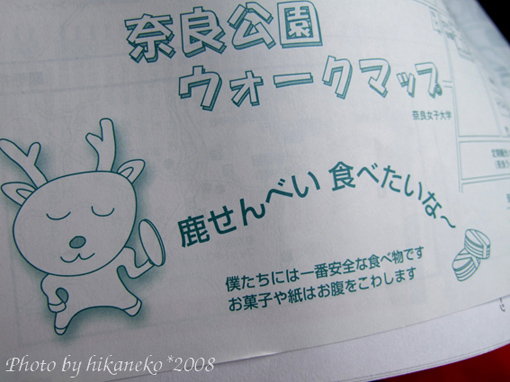 奈良公園
ウォークマップ
奈良女子大学
鹿せんべい 食べたいな〜
僕たちには一番安全な食べ物です
お菓子や紙はお腹をこわします
Photo by hikaneko*2008